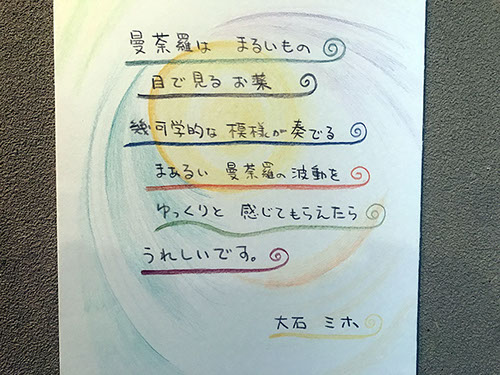 曼荼羅は まるいもの
目で見る お薬
幾可学的な 模様が奏でる
まぁるい 曼荼羅の波動を
ゆっくりと 感じてもらえたら
うれしいです。
大石 ミホ